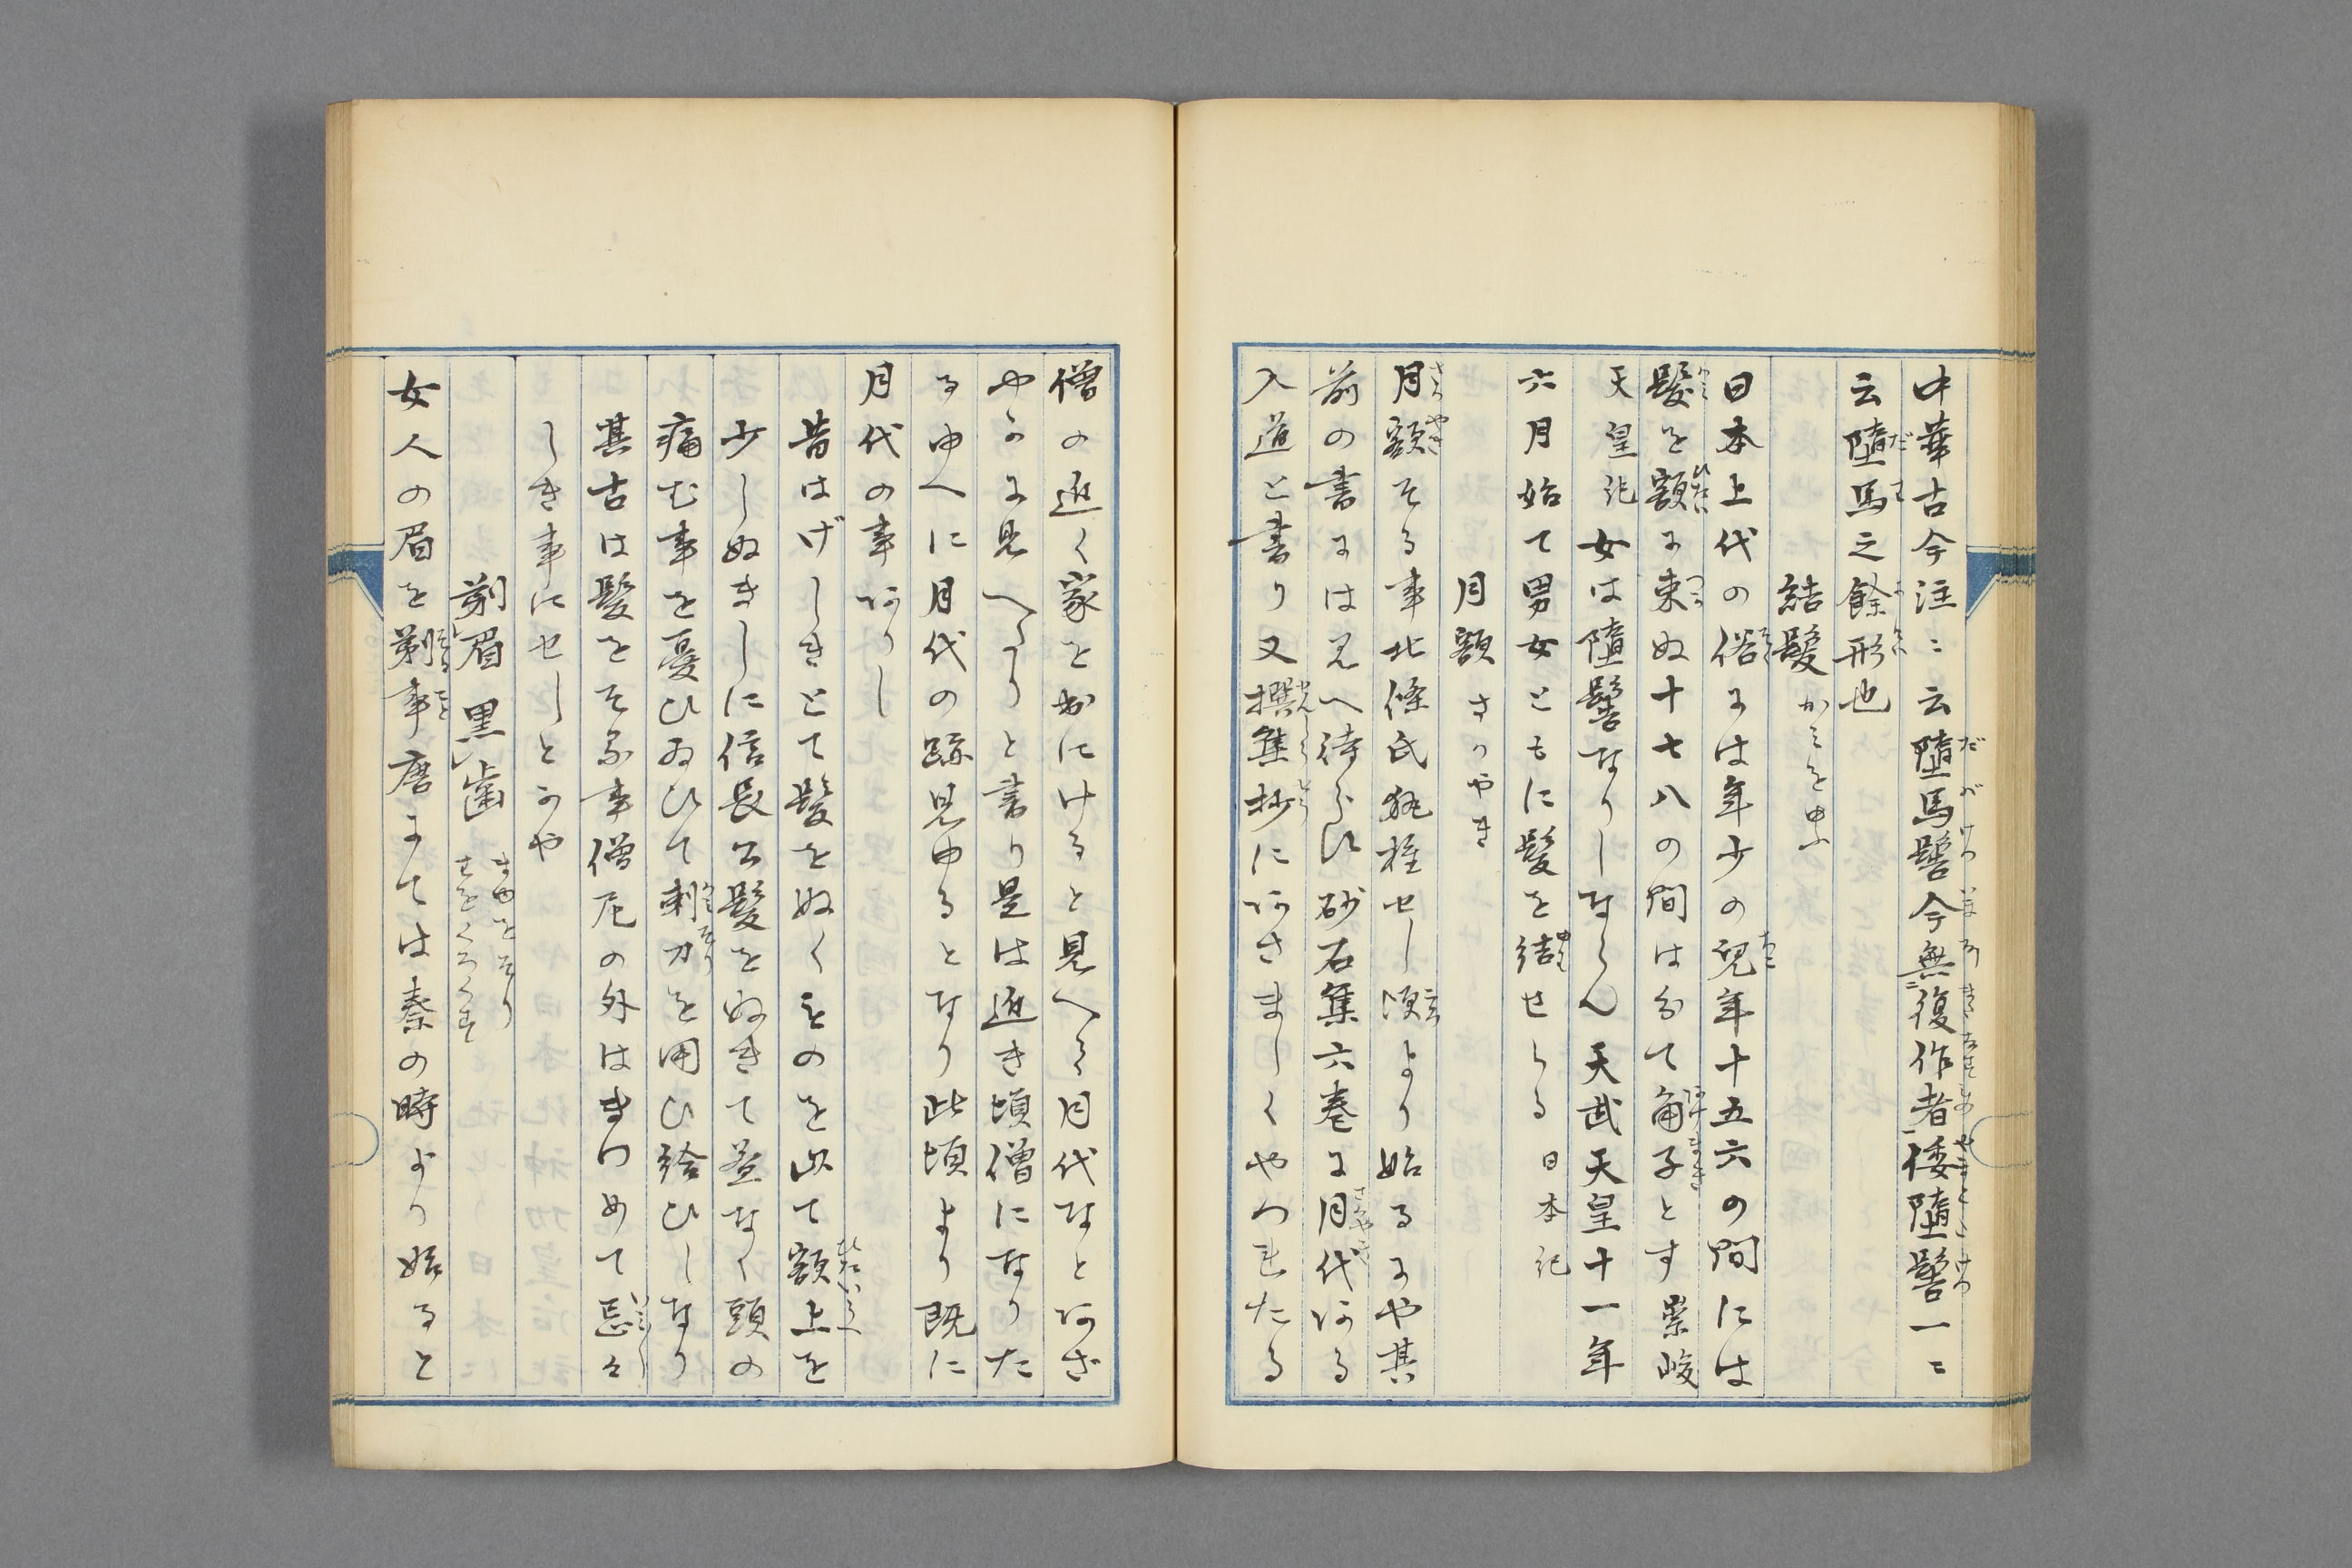 中華古今注ニ云墮馬髻今無復作者倭墮髻一ニ
云墮馬之餘形也
結髪 かミをゆふ
日本上代の俗には年少の兒年十五六の間には
髪を額に束ぬ十七八の間は分て角子とす 崇峻
天皇記 女は墮髻なりしならん 天武天皇十一年
六月始て男女ともに髪を結せらる 日本記
月額 さかやき
月額そる事北條氏執権せし頃より始るにや其
前の書には見へ侍らす 砂石集六巻に月代ある
入道と書り又撰集抄にあさましくやつれたる
僧の近く家を出にけると見へて月代なとあざ
やかに見へたりと書り是は近き頃僧になりた
るゆへに月代の跡見ゆるとなり此頃より既に
月代の事ありし
昔はげしきとて髪をぬくものを以て額上を
少しぬきしに信長公髪をぬきて益なく頭の
痛む事を憂ひ玉ひて剃刀を用ひ給ひしなり
其古は髪をそる事僧尼の外はきわめて忌々
しき事にせしとかや
剃眉 黒歯 まゆをそり はをくろくす
女人の眉を剃事唐にては秦の時より始ると